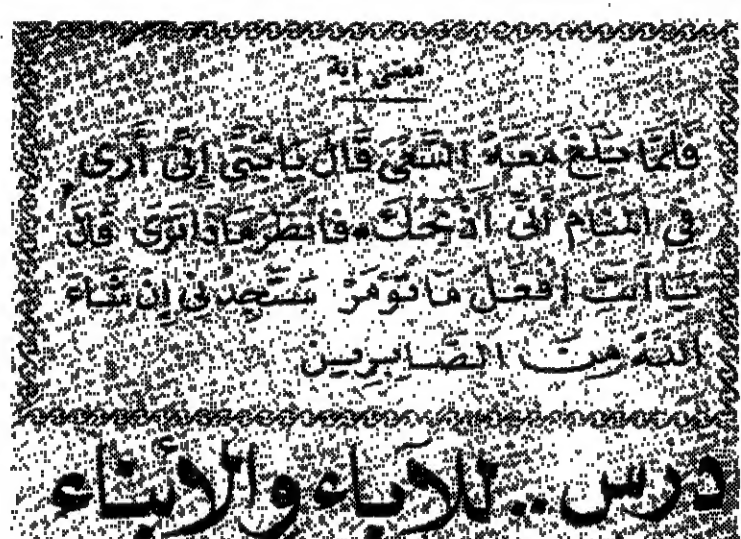 معنى آية
فَلَمَّا بَلَغَ مَعَهُ السَّعْىَ قَالَ يَابُنَىَّ إِنِّى أَرَى
فِى الْمَنَامِ أَنِّى أَذْبَحُكَ فَانْظُرْ مَاذَا تَرَى قَالَ
يَا أَبَتِ افْعَلْ مَا تُؤْمَرُ سَتَجِدُنِى إِنْ شَاءَ
اللهُ مِنَ الصَّابِرِينَ
درس .. للآباء والأبناء